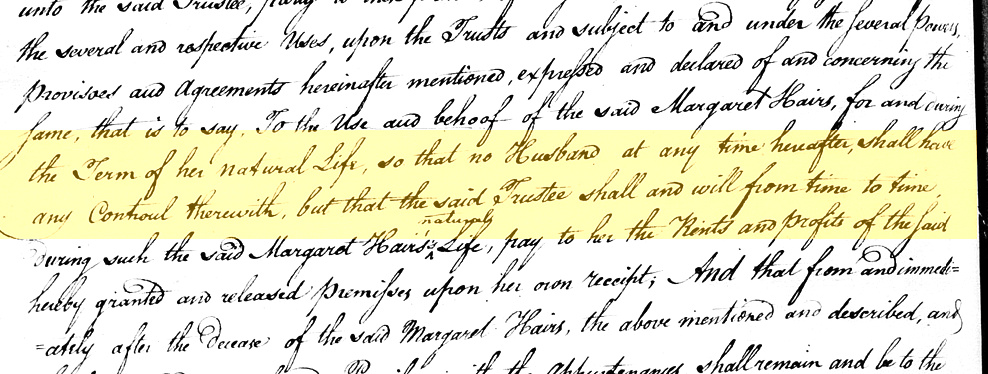 unto the said Trustee,
the several and respective Uses, upon the Trusts and subject to and under the several Powers,
Provisoes and Agreements hereinafter mentioned, expressed and declared of and concerning the
same, that is to say, To the Use and behoof of the said Margaret Hairs, for and during
the Term of her natural Life, so that no Husband at any time hereafter, shall have
any Controul therewith, but that the said Trustee shall and will from time to time,
naturals
During such the said Margaret Hairs's Life, pay to her the Rents and Profits of the said
hereby granted and released Premisses upon her own receipt; And that from and immedi=
=ately after the Decease of the said Margaret Hairs, the above mentioned and described, and
with the Appurtenances shall remain and be to the